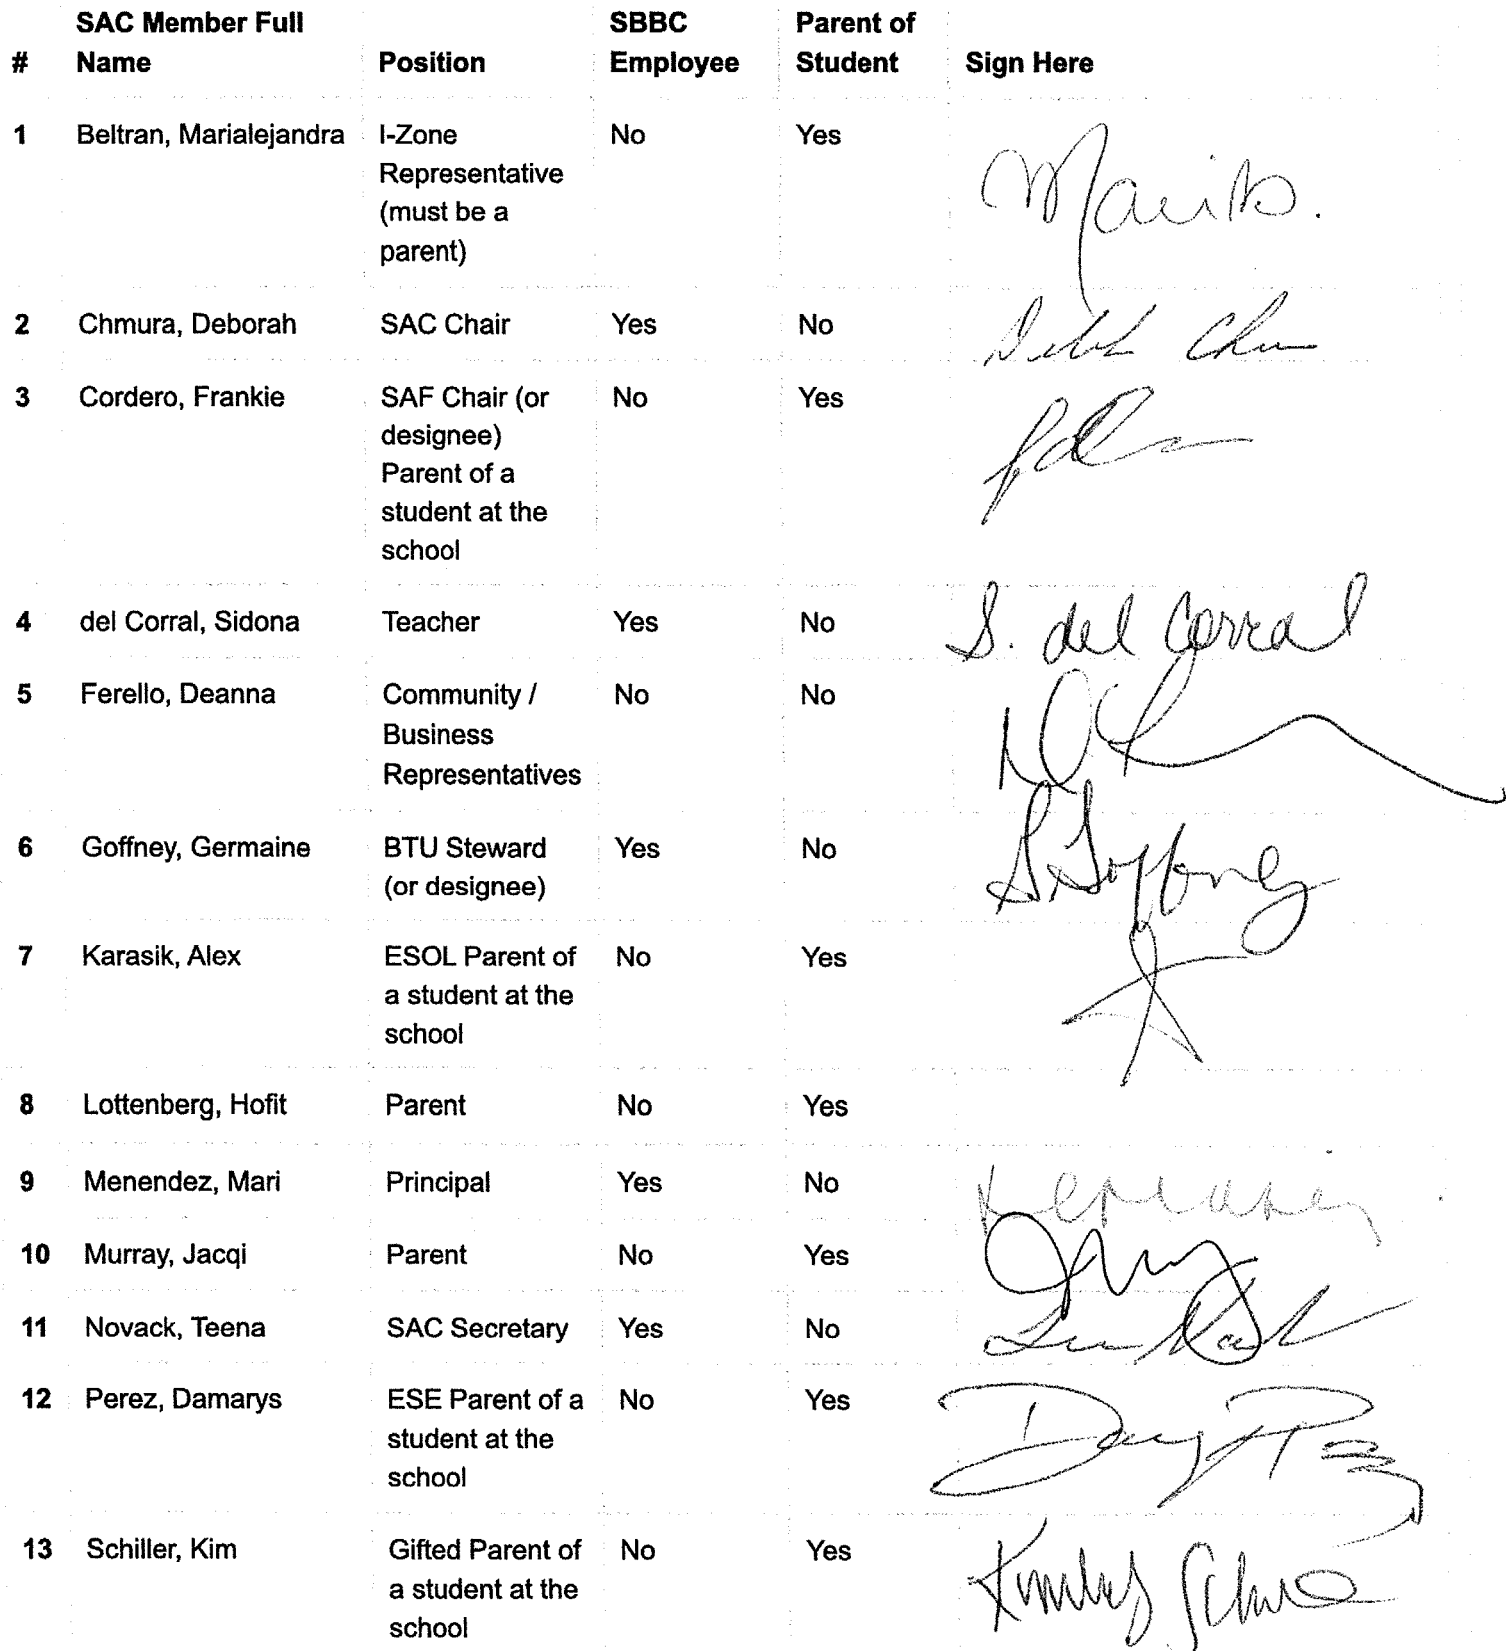 SAC Member Full SBBC Parent of
# Name Position Employee Student Sign Here
1 Beltran, Marialejandra I-Zone No Yes
Representative
(must be a
parent)
2 Chmura, Deborah SAC Chair Yes No
3 Cordero, Frankie SAF Chair (or No Yes
designee)
Parent of a
student at the
school
4 del Corral, Sidona Teacher Yes No S. del Corral
5 Ferello, Deanna Community / No No
Business
Representatives
6 Goffney, Germaine BTU Steward Yes No
(or designee)
7 Karasik, Alex ESOL Parent of No Yes
a student at the
school
8 Lottenberg, Hofit Parent No Yes
9 Menendez, Mari Principal Yes No
10 Murray, Jacqi Parent No Yes
11 Novack, Teena SAC Secretary Yes No
12 Perez, Damarys ESE Parent of a No Yes
student at the
school
13 Schiller, Kim Gifted Parent of No Yes
a student at the
school